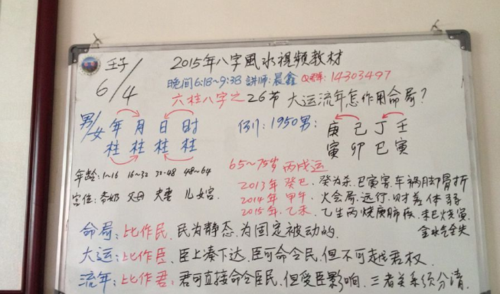 壬子
6/4
2015年八字風水视频教材
晚间6:18~9:38 讲师:晨鑫 Q
六柱八字之26节 大运流年怎作用命局?
男/女 年 月 日 时
柱 柱 柱 柱
例1: 1950男: 庚 己 丁 壬
寅 卯 巳 寅
年龄: 1~16 16~32 32~48 48~64
宫位: 爷奶 父母 夫妻 儿女宫
65~75岁 丙戌运
2013年 癸巳. 癸为杀. 巳寅害. 车祸脚骨折
2014年 甲午. 火会局. 运行. 财
2015年. 乙未. 乙生丙
命局: 比作民, 民为静态, 为固定被动的.
大运: 比作臣, 臣上奏下达, 臣可命令民, 但不可越君权.
流年: 比作君: 君可直接命令臣民, 但受臣影响. 三者关系须分清.